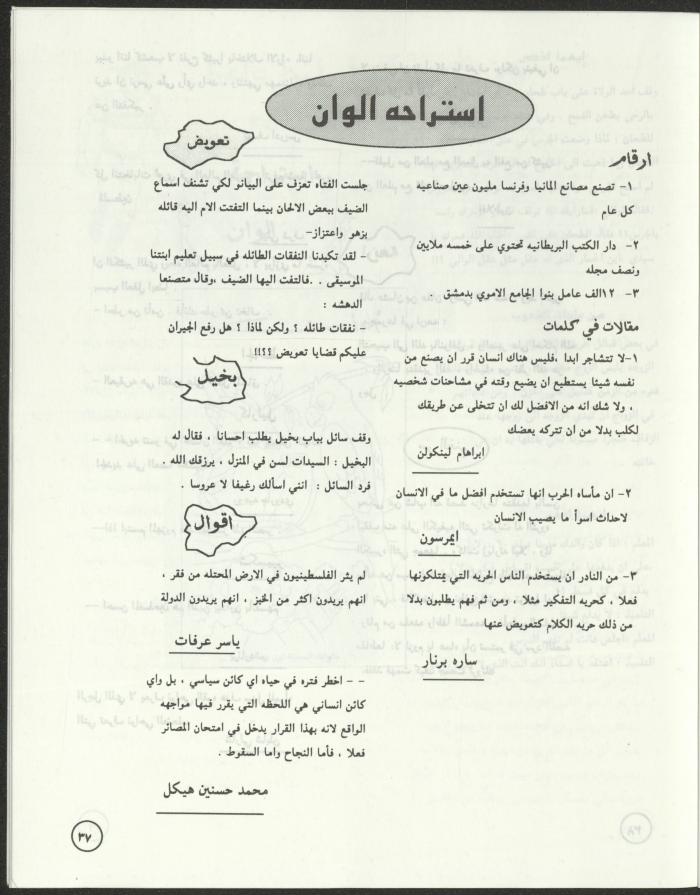 استراحه الوان
ارقام
١- تصنع مصانع المانيا وفرنسا مليون عين صناعيه
كل عام
٢- دار الكتب البريطانيه تحتوي على خمسه ملايين
ونصف مجله
٣- ١٢الف عامل بنوا الجامع الاموي بدمشق .
مقالات في كلمات
١-لا تتشاجر ابدا ،فليس هناك انسان قرر ان يصنع من
نفسه شيئا يستطيع ان يضيع وقته في مشاحنات شخصيه
، ولا شك انه من الافضل لك ان تتخلى عن طريقك
لكلب بدلا من ان تتركه يعضك
ابراهام لينكولن
٢- ان مأساه الحرب انها تستخدم افضل ما في الانسان
لاحداث اسرأ ما يصيب الانسان
ايمرسون
٣- من النادر ان يستخدم الناس الحريه التي يمتلكونها
فعلا ، كحريه التفكير مثلا ، ومن ثم فهم يطلبون بدلا
من ذلك حريه الكلام كتعويض عنها
ساره برنار
تعويض
جلست الفتاه تعزف على البيانو لكي تشنف اسماع
الضيف ببعض الالحان بينما التفتت الام اليه قائله
بزهو واعتزاز-
- لقد تكبدنا النفقات الطائله في سبيل تعليم ابنتنا
الموسيقى . .فالتفت اليها الضيف ،وقال متصنعا
الدهشه :
- نفقات طائله ؟ ولكن لماذا ؟ هل رفع الجيران
عليكم قضايا تعويض ؟؟!!
بخيل
وقف سائل بباب بخيل يطلب احسانا . فقال له
البخيل : السيدات لسن في المنزل ، يرزقك الله .
فرد السائل : انني اسألك رغيفا لا عروسا .
اقوال
لم يثر الفلسطينيون في الارض المحتله من فقر ،
انهم يريدون اكثر من الخبز ، انهم يريدون الدولة
ياسر عرفات
- - اخطر فتره في حياه اي كائن سياسي ، بل واي
كائن انساني هي اللحظه التي يقرر فيها مواجهه
الواقع لانه بهذا القرار يدخل في امتحان المصائر
فعلا ، فأما النجاح واما السقوط .
محمد حسنين هيكل
٣٧